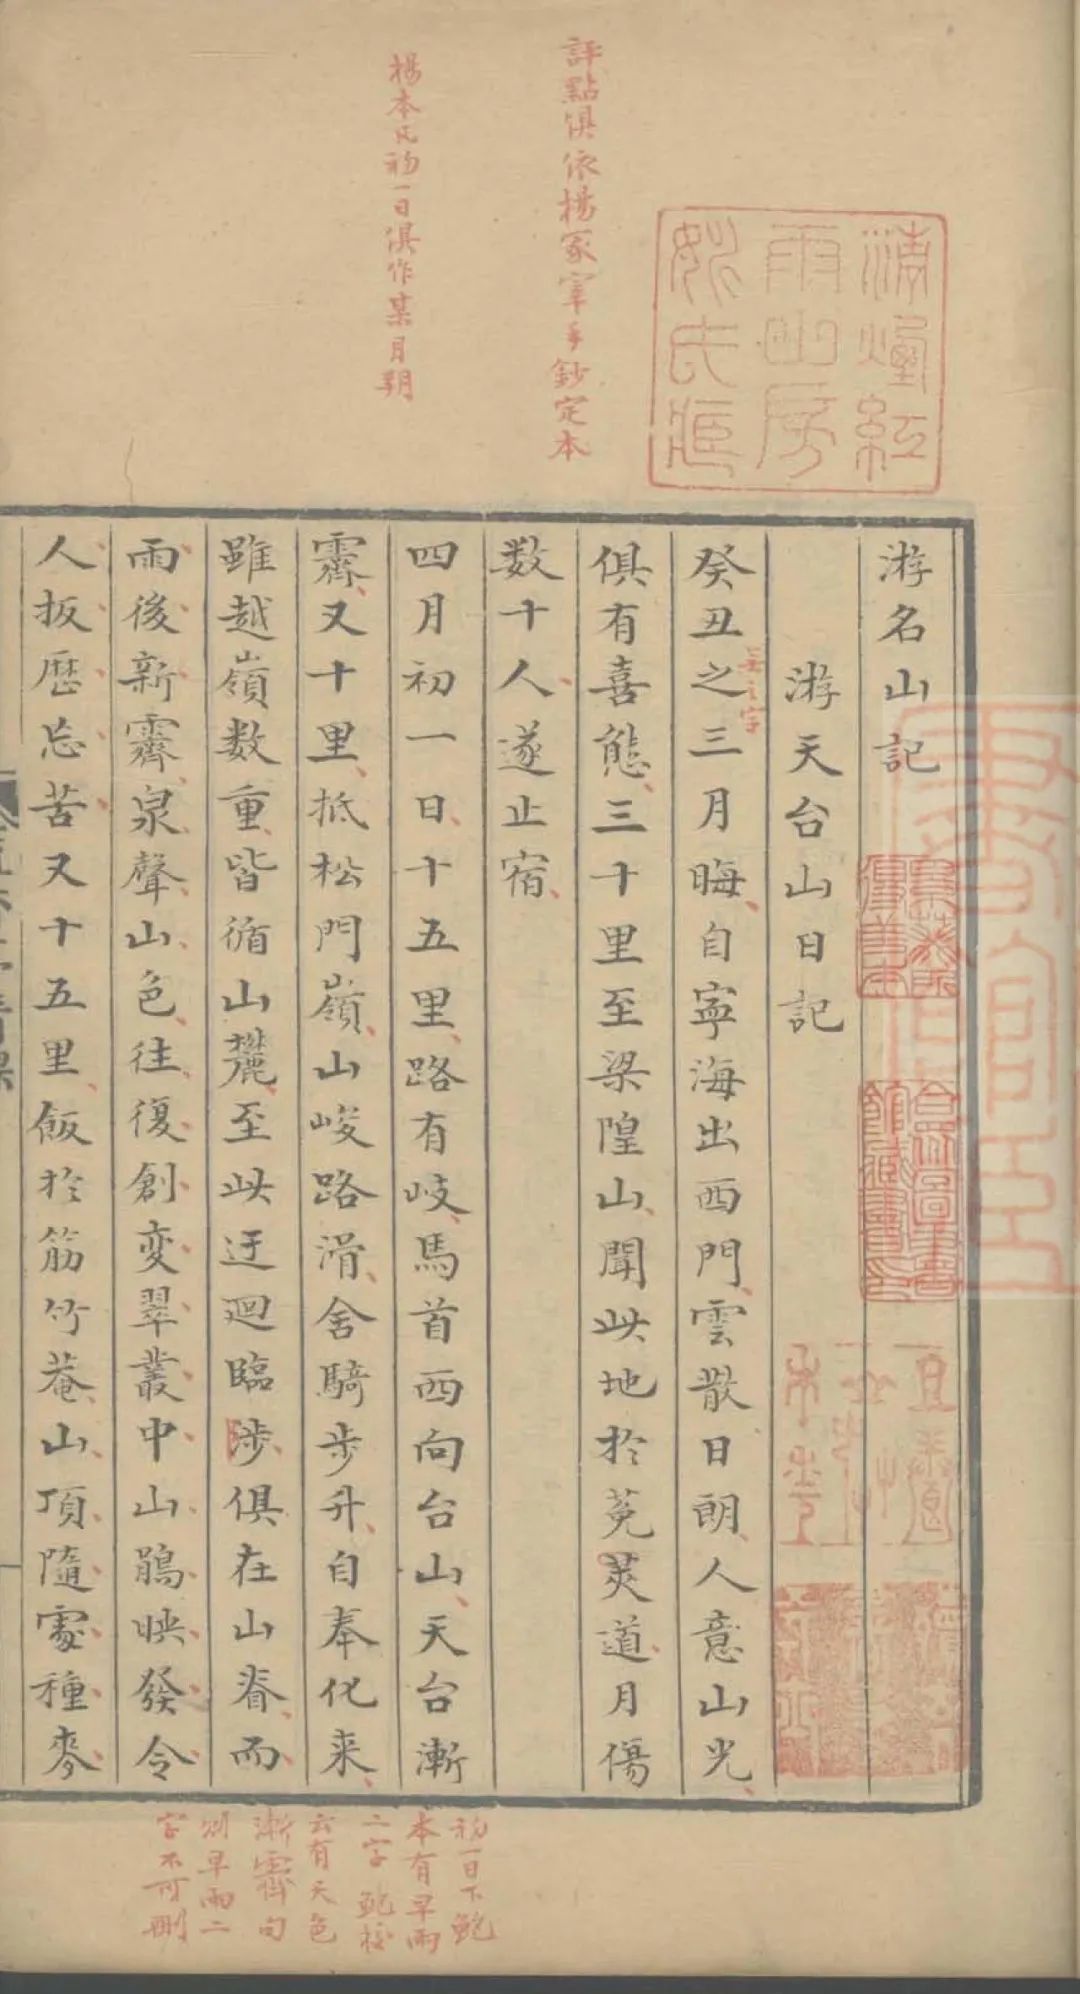 評點俱依楊冢宰手鈔定本
楊本凡初一日俱作某月朔
清煙紅
雨山房
姚氏藏
游名山記
游天台山日記
癸丑之三月晦自寧海出西門雲散日朗人意山光
無之字
俱有喜態三十里至梁隍山聞此地於菟荚道月傷
数十人遂止宿
四月初一日十五里路有岐馬首西向台山天台漸
霽又十里抵松門嶺山峻路滑舍騎步升自奉化来
雖越嶺数重皆循山麓至此迂迴臨陟俱在山脊而
雨後新霽泉聲山色往復創變翠叢中山鵑映發令
人扳歷忘苦又十五里飯於筋竹菴山頂隨處種麥
初一日下鮑
本有早雨
二字 鮑校
云有天色
漸霽句
則早雨二
字不可刪